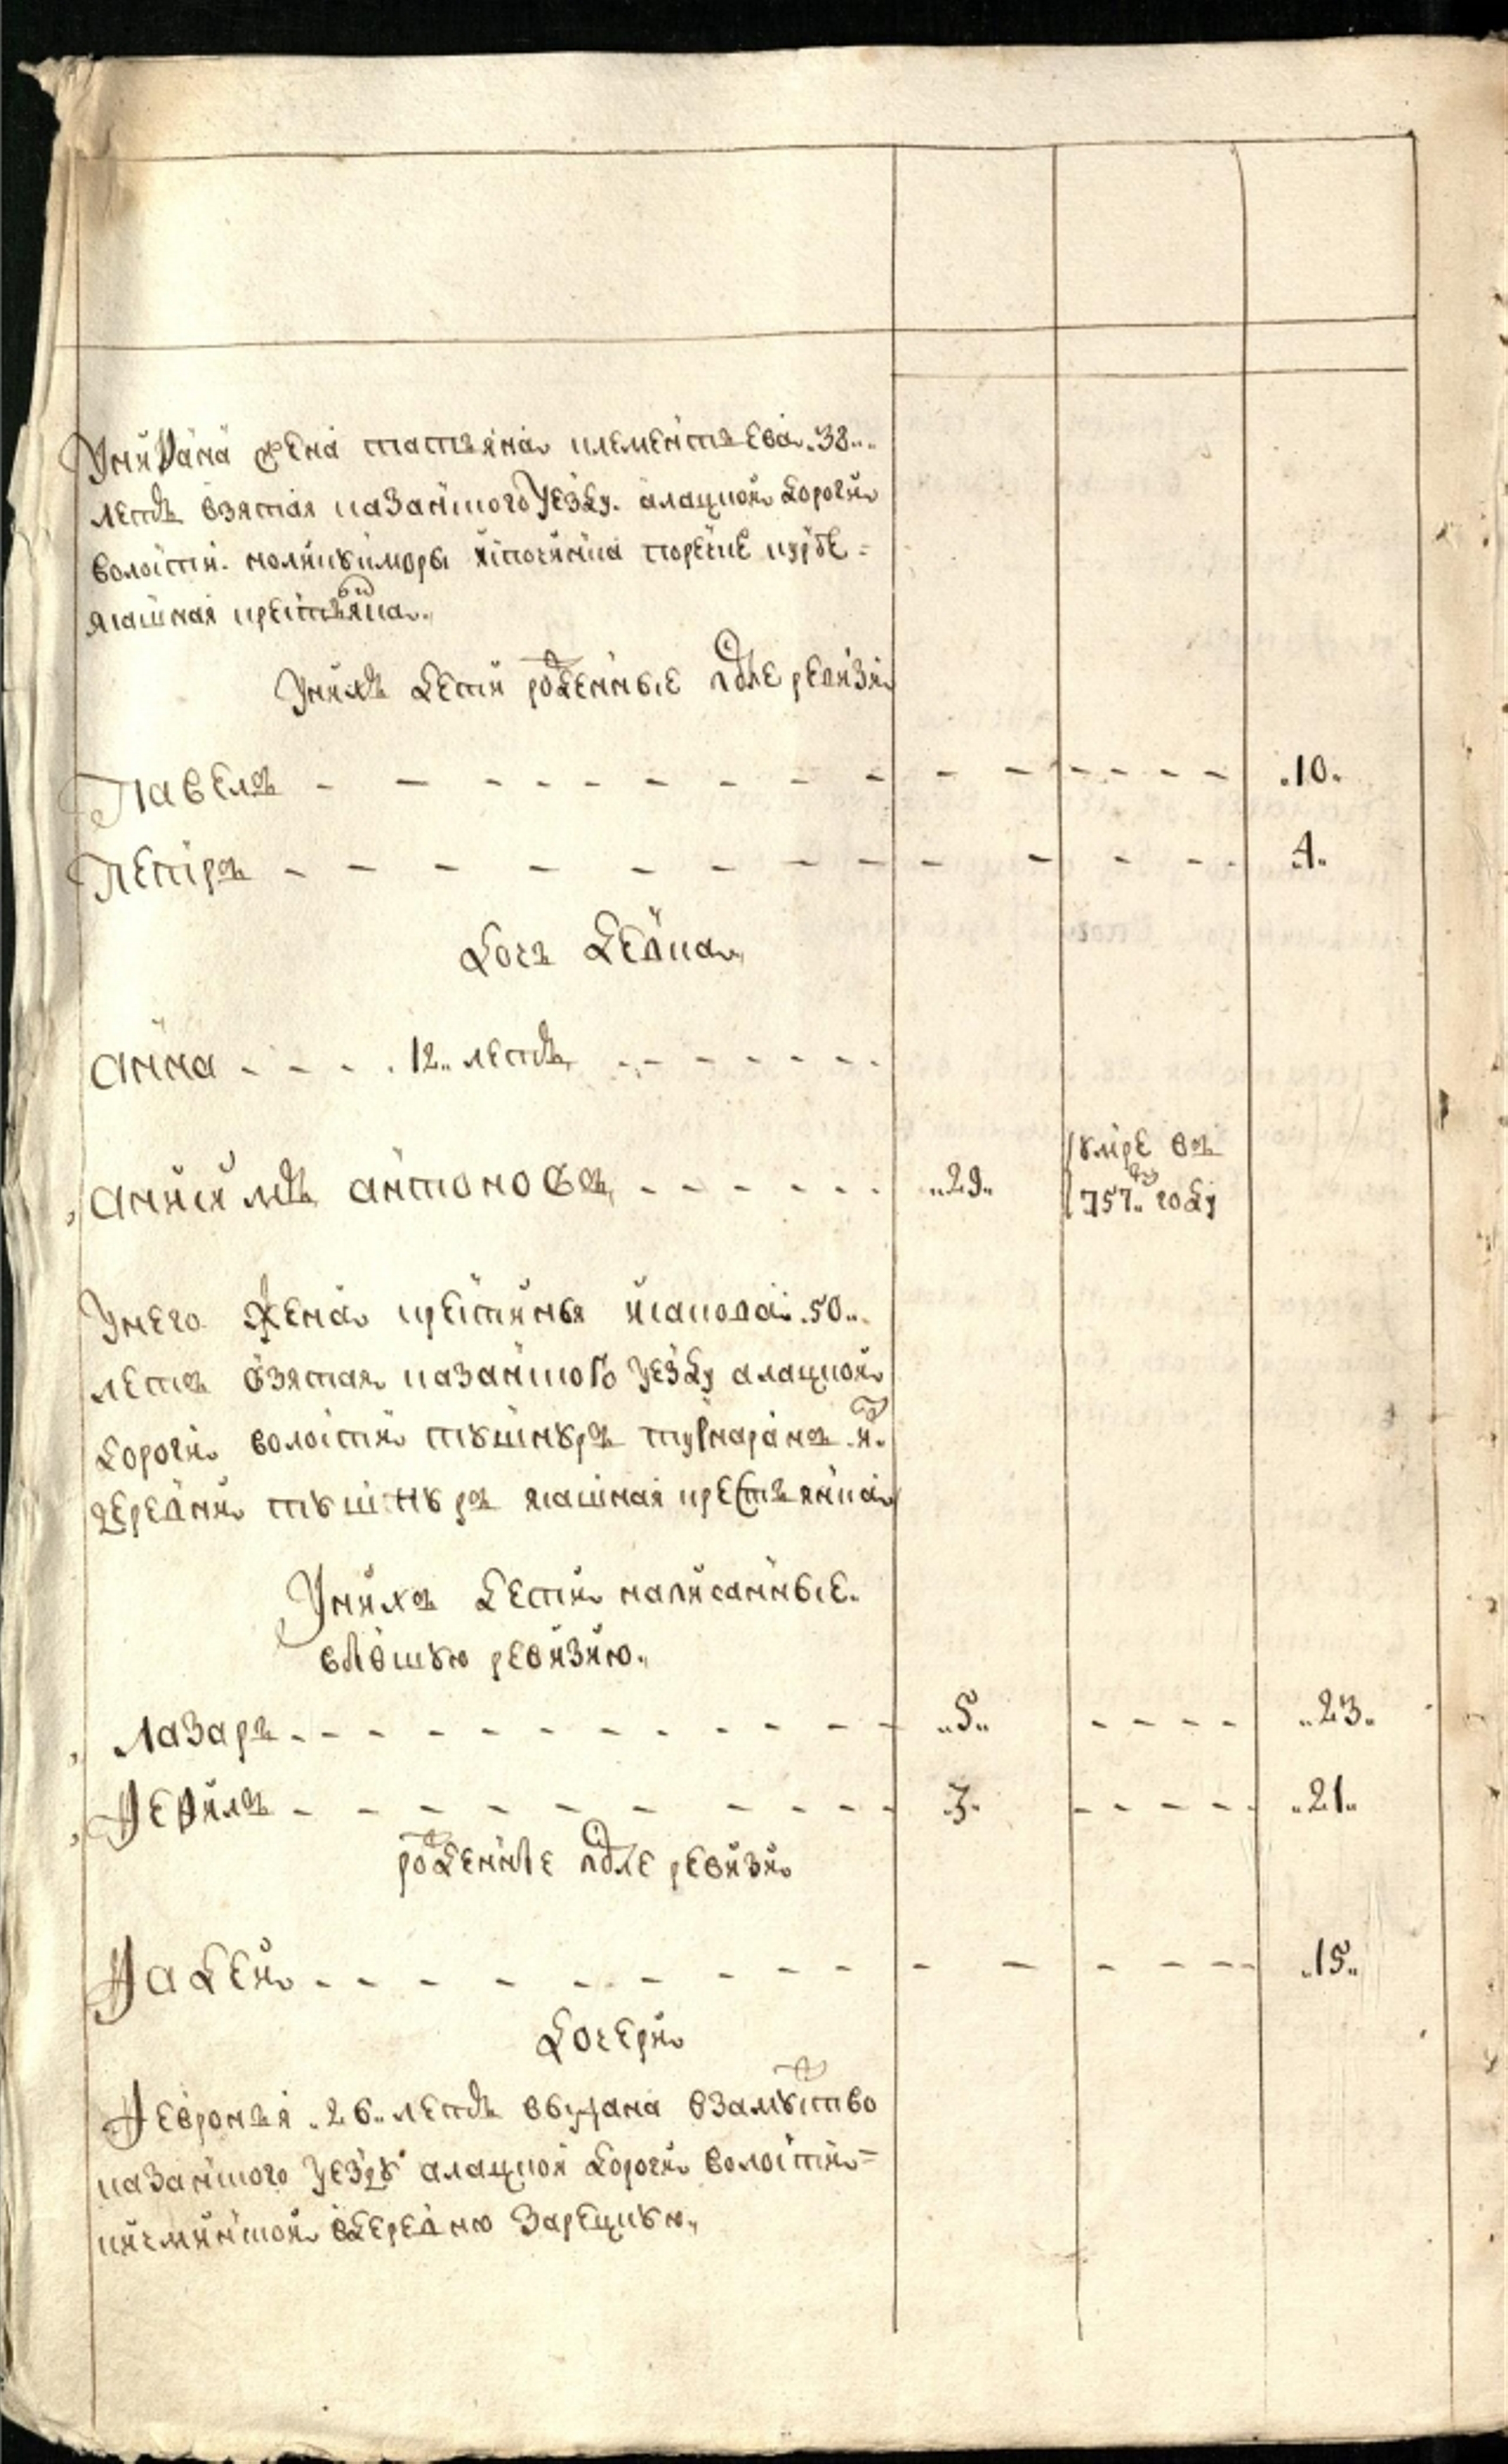 Унивана жена татьяна клементьева 38
летъ взятая казанского уезду алацкой дороги
волости
ясашная крестьянка
Унихъ дети рожденные после ревизи
Павелъ 10
Петръ 4
дочь девка
анна 12 летъ
анисимъ антоновъ 29 умре въ 757 году
Унего жена крестинья 50
летъ взятая казанского уезду алацкой
дороги волости
деревни ясашная крестьянка
Унихъ дети написанные
впрошлую ревизию
лазарь 5 23
3 21
рожденные после ревизи
Фадей 15
дочери
Февронья 26 летъ выдана взамужство
казанского уезду алацкой дороги волости
вдеревню зарецкую